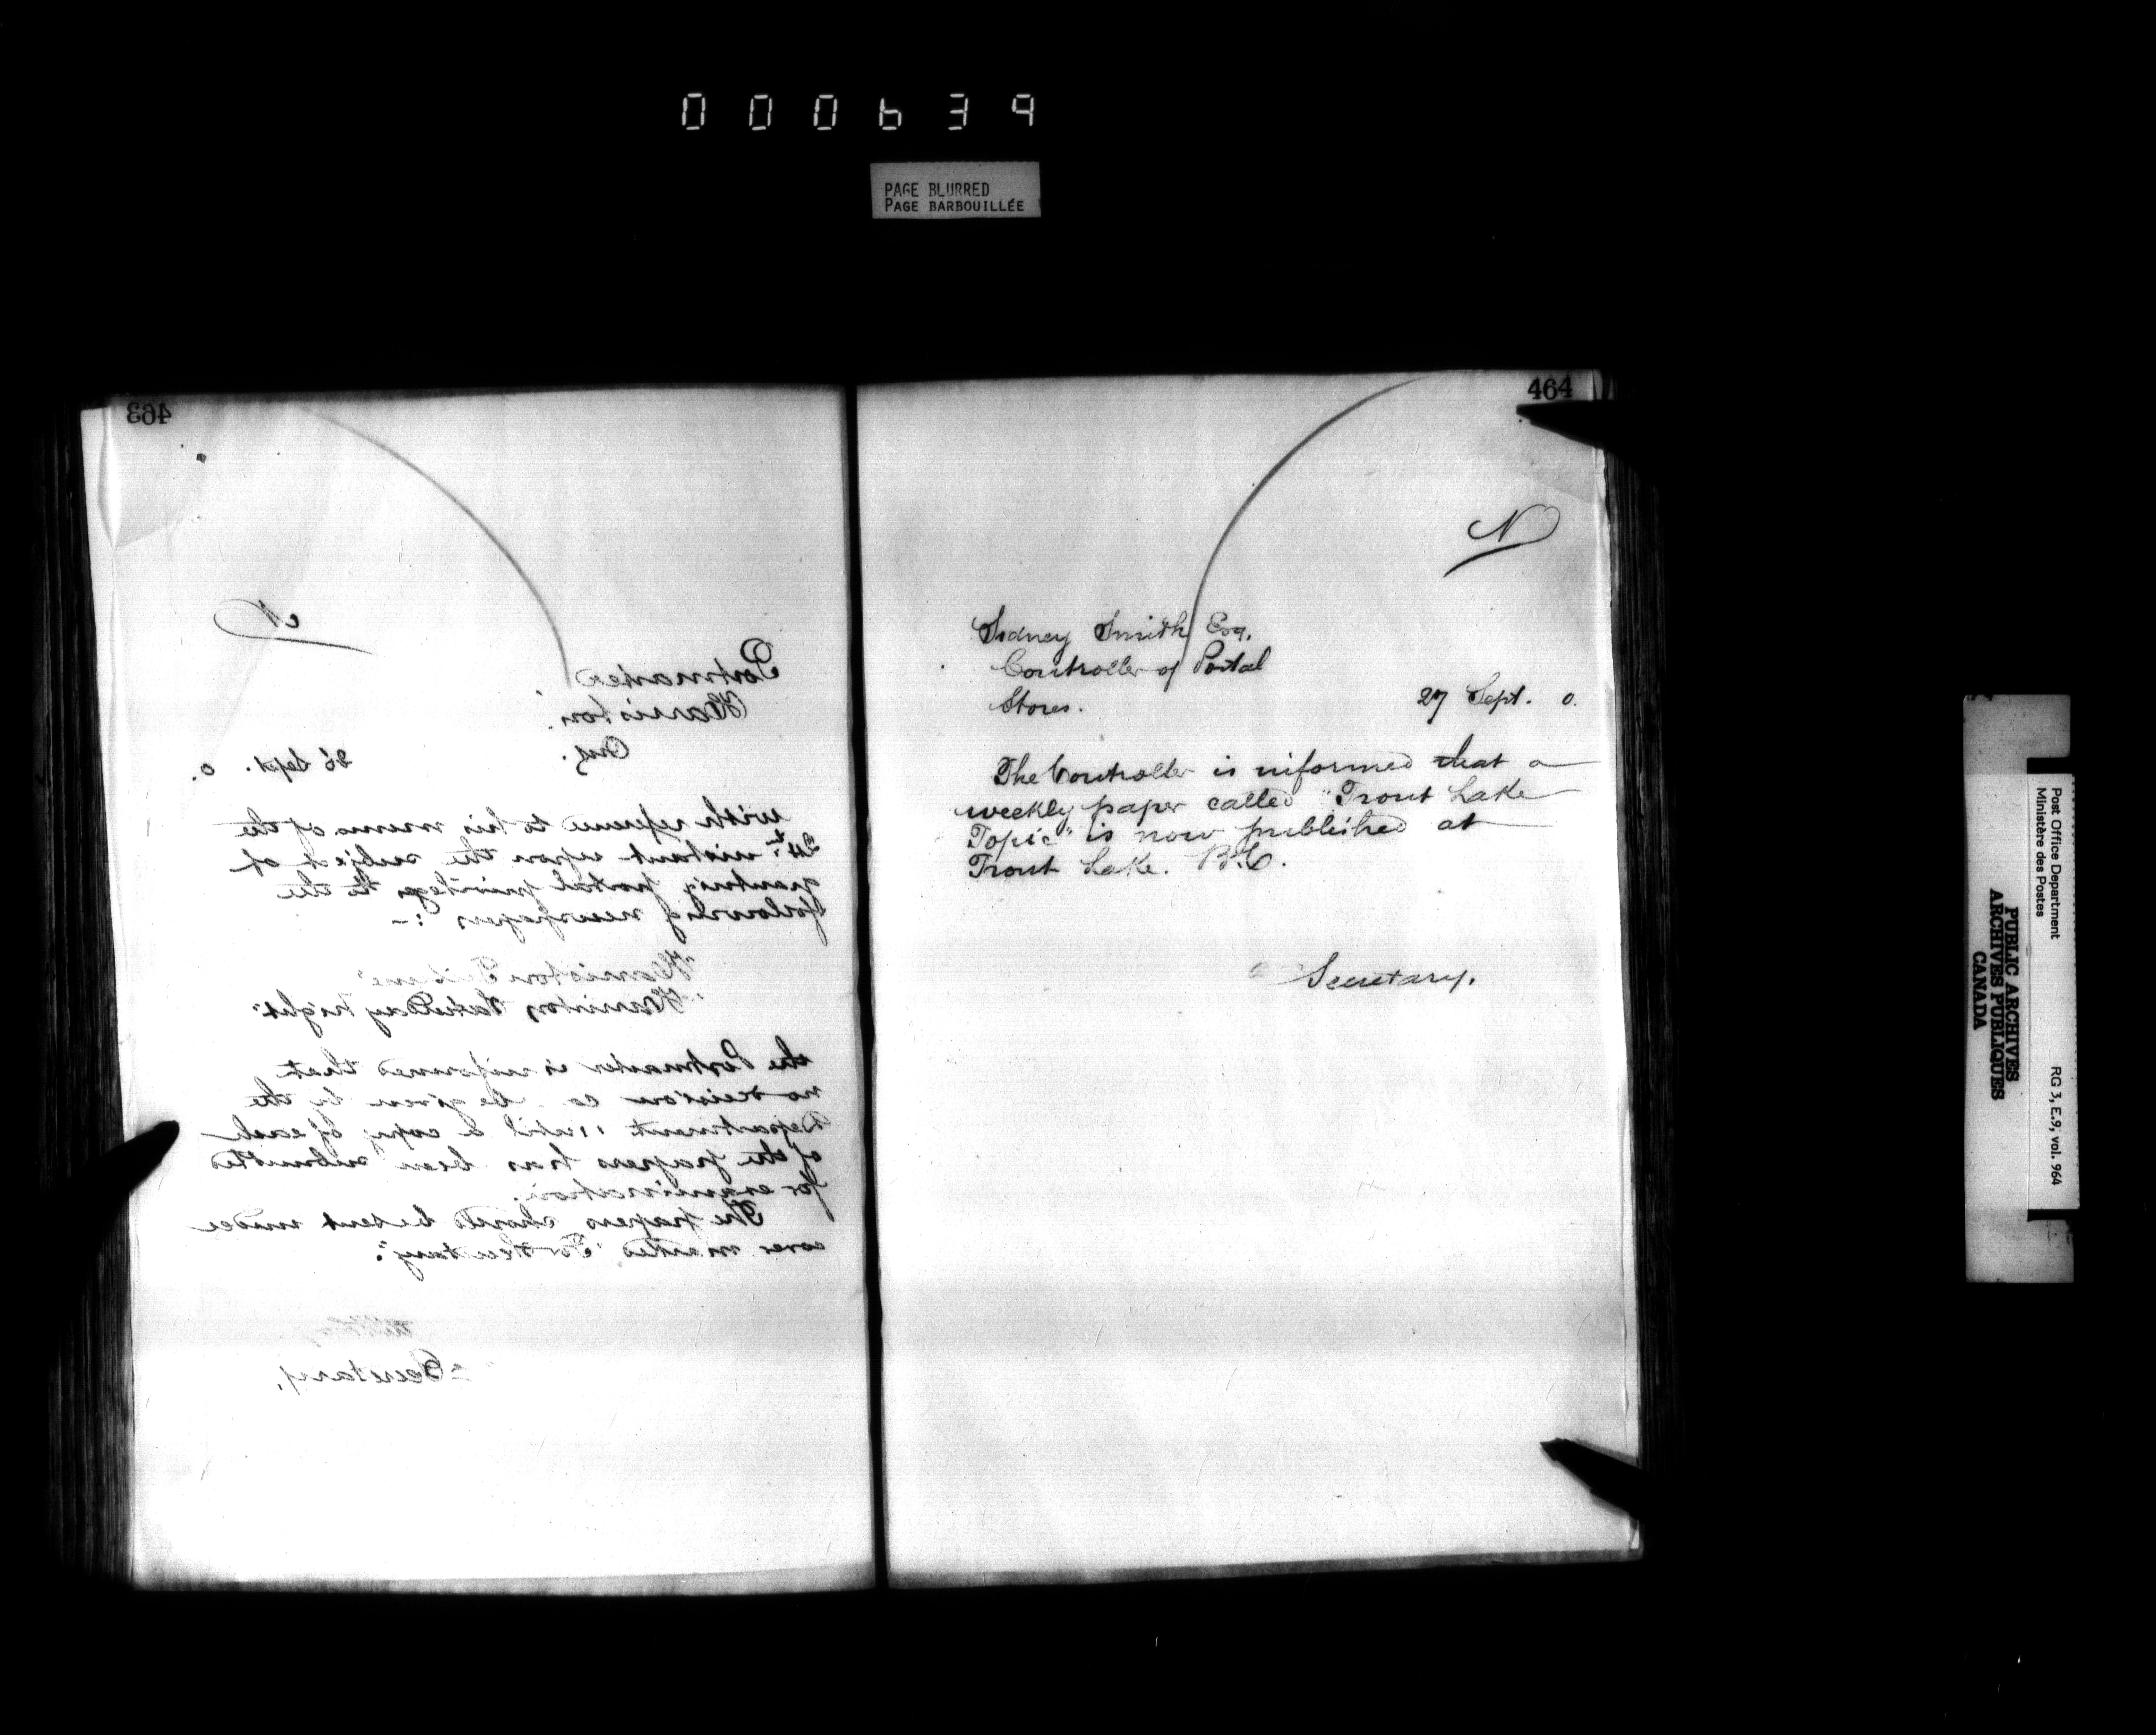 000639
PAGE BLURRED
PAGE BARBOUILLÉE
463
N
Postmaster
Harriston
Ont.
26 Sept. 0.
With reference to his memo of the
24th instant upon the subject of
granting postal privileges to the
following newspapers :-
"Harriston Tribune"
"Harriston Saturday Night"
the Postmaster is informed that
no decision can be given by the
Department until a copy of each
of the papers has been submitted
for examination.
The papers should be sent under
cover marked "For Secretary".
Secretary.
464
N
Sidney Smith Esq.
Controller of Postal
Stores.
27 Sept. 0.
The Controller is informed that a
weekly paper called "Trout Lake
Topic" is now published at
Trout Lake. B.C.
Secretary.
Post Office Department
Ministère des Postes
RG 3, E.9, vol. 964
PUBLIC ARCHIVES
ARCHIVES PUBLIQUES
CANADA